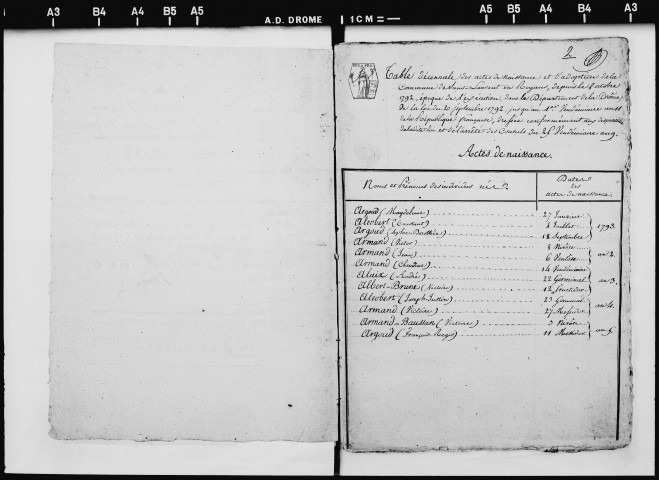 A3 B4 A4 B5 A5 A.D. DROME 1CM= A5 B5 A4 B4 A3
2
Table décennale des actes de naissance et d'adoption de la
Commune de Saint-Laurent en Royans, depuis le 8 octobre
1792, époque de l'exécution, dans le Département de la Drôme,
de la loi du 20 Septembre 1792, jusqu'au 1er Vendémiaire an 11
de la République française, dressée conformément aux dispositions
de ladite loi et de l'arrêté des Consuls du 25 Vendémiaire an 9.
Actes de naissance.
Noms et Prénoms des individus nés
Dates
des
actes de naissance
Argoud (Magdeleine) 27 Janvier
Aleobert 4 Juillet
Argoud (Sophie 18 Septembre 1793.
Armand (Victor) 8 Nivôse
Armand (Jean) 6 Ventôse an 2.
Armand 14 Vendémiaire
Alaix (André) 22 Germinal an 3.
Albert-Brune 12 fructidor
Aleobert (Joseph 23 Germinal
Armand (Victoire) 27 Messidor an 4.
Armand-Baussan 3 Nivôse
Argoud (François 11 Messidor